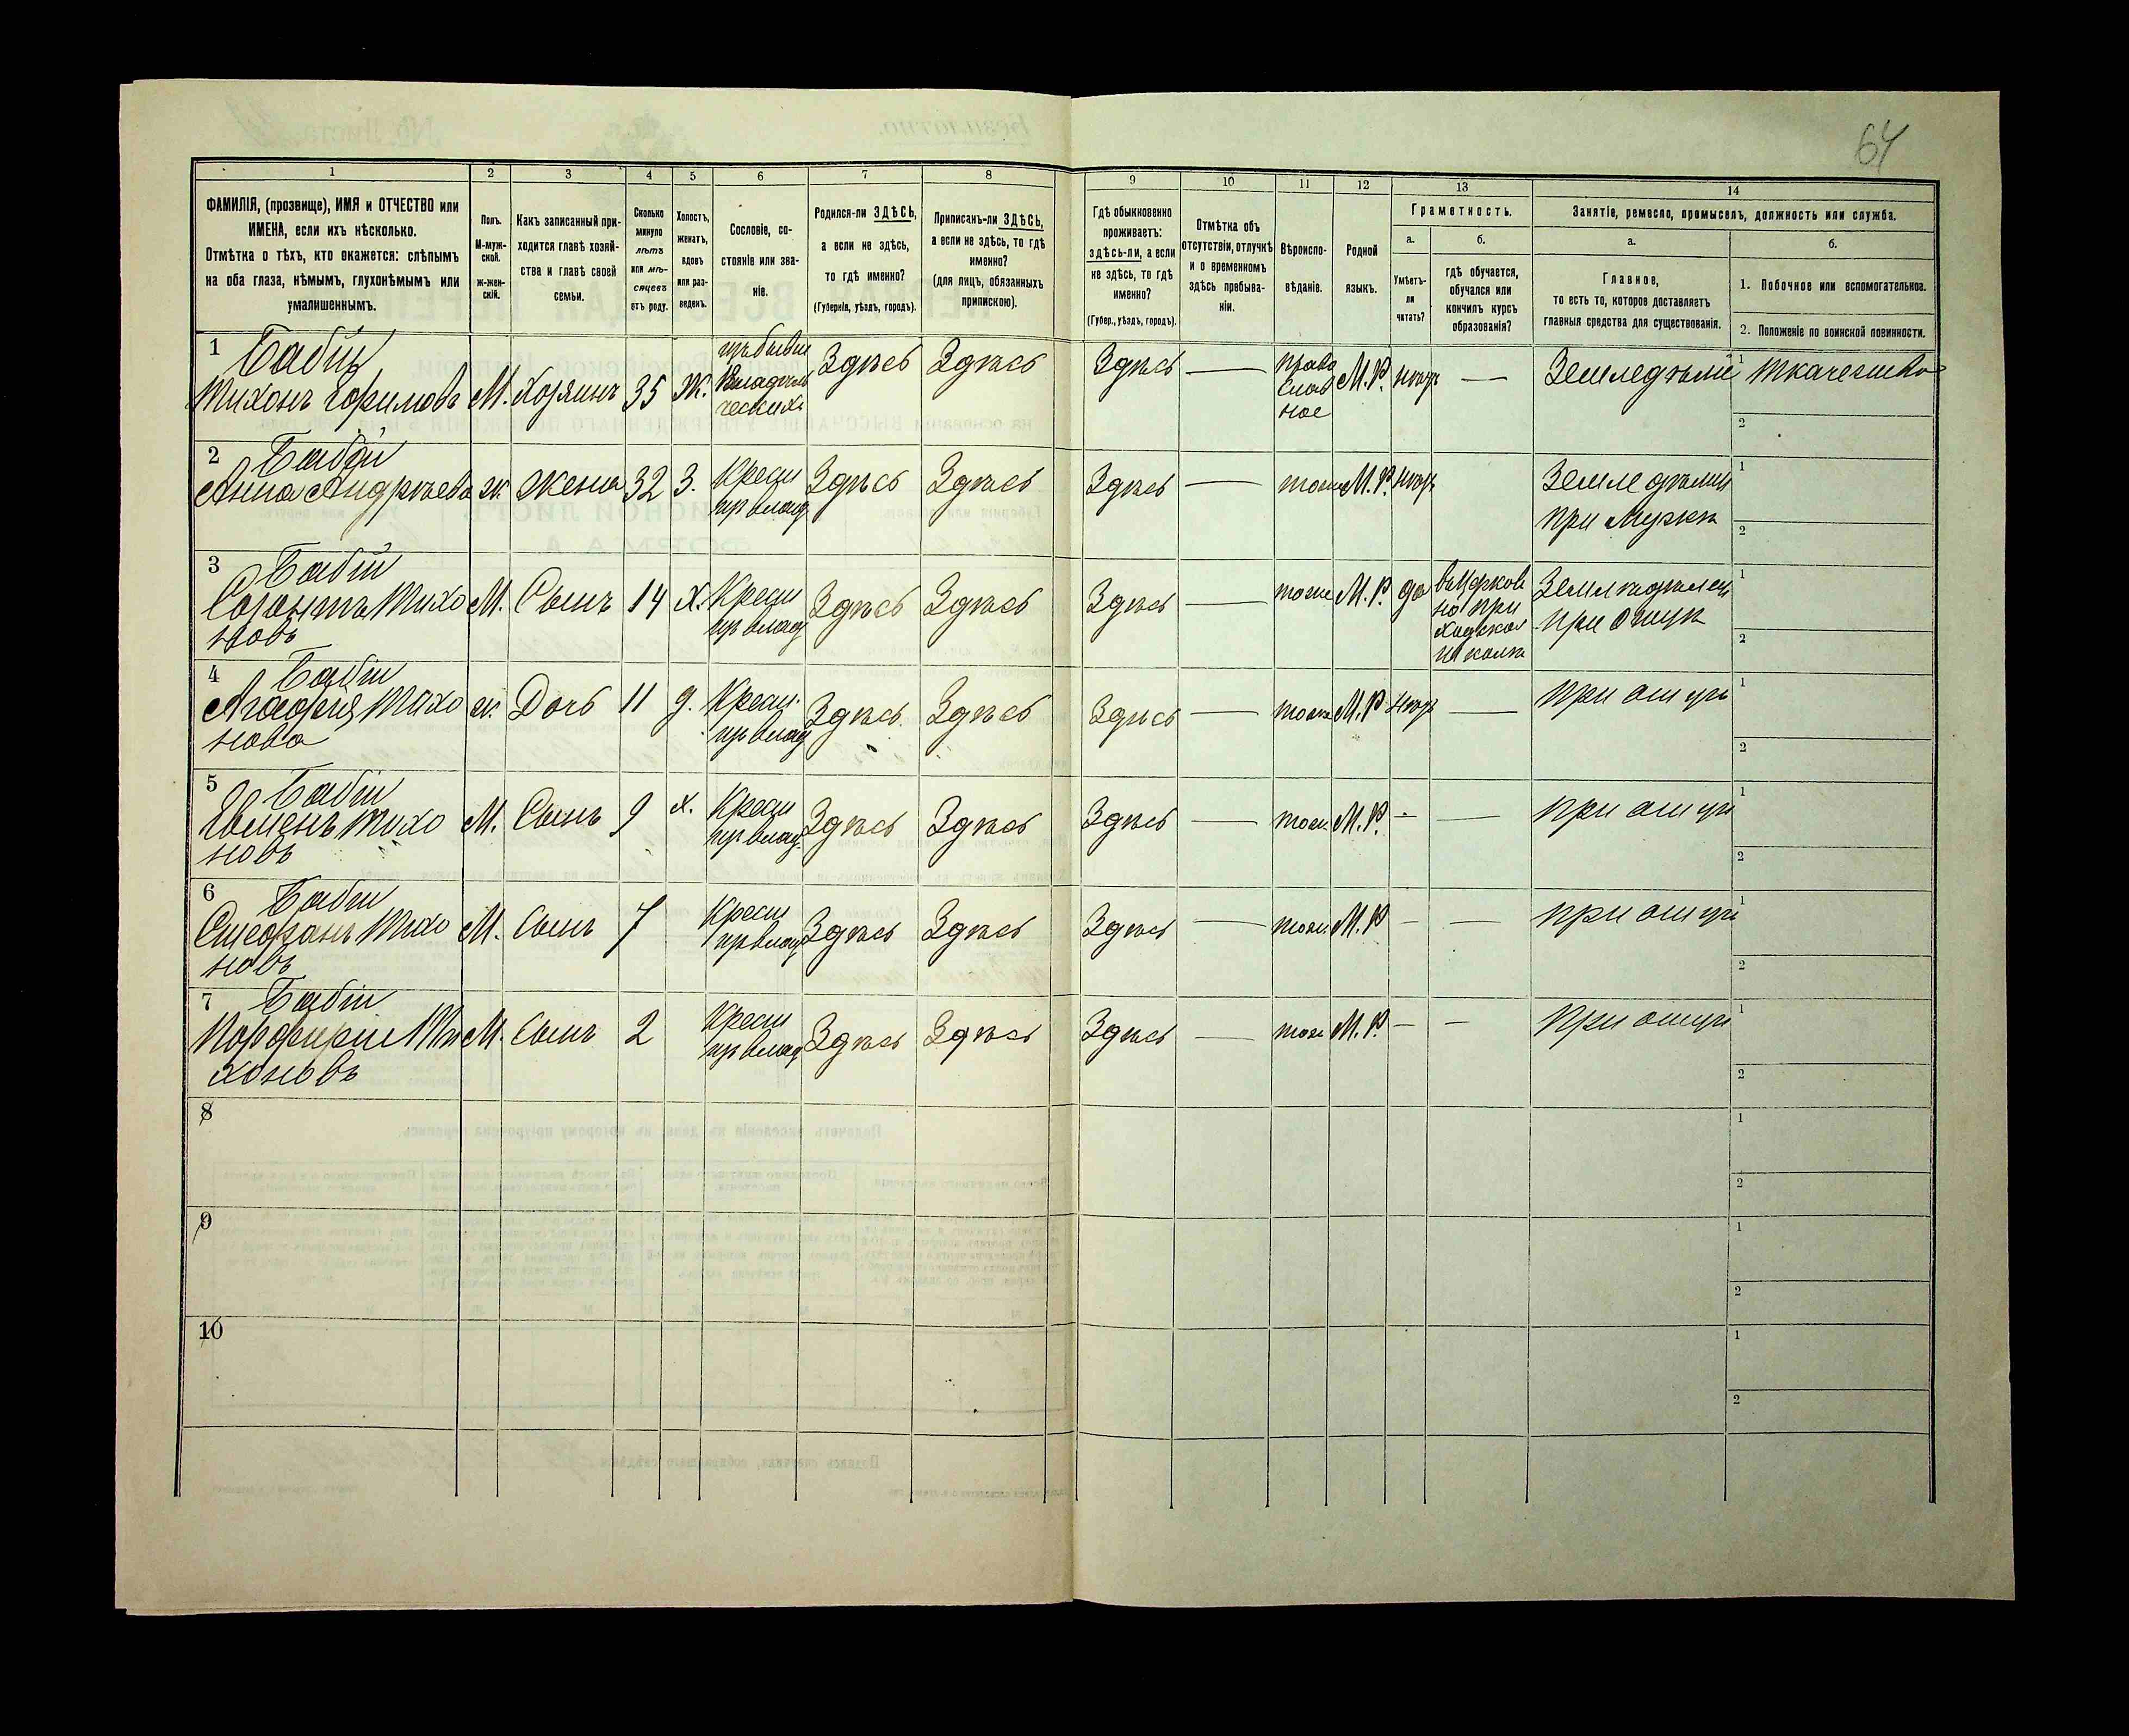 64
1 2 3 4 5 6 7 8 9 10 11 12 13 14
ФАМИЛІЯ, (прозвище), ИМЯ и ОТЧЕСТВО или
ИМЕНА, если ихъ нѣсколько.
Отмѣтка о тѣхъ, кто окажется: слѣпымъ
на оба глаза, нѣмымъ, глухонѣмымъ или
умалишеннымъ.
Полъ.
М-муж-
ской.
ж-жен-
скій.
Какъ записанный при-
ходится главѣ хозяй-
ства и главѣ своей
семьи.
Сколько
минуло
лѣтъ
или мѣ-
сяцевъ
отъ роду.
Холостъ,
женатъ,
вдовъ
или раз-
веденъ.
Сословіе, со-
стояніе или зва-
ніе.
Родился-ли ЗДѢСЬ,
а если не здѣсь,
то гдѣ именно?
(Губернія, уѣздъ, городъ).
Приписанъ-ли ЗДѢСЬ,
а если не здѣсь, то гдѣ
именно?
(для лицъ, обязанныхъ
припискою).
Гдѣ обыкновенно
проживаетъ:
здѣсь-ли, а если
не здѣсь, то гдѣ
именно?
(Губер., уѣздъ, городъ).
Отмѣтка объ
отсутствіи, отлучкѣ
и о временномъ
здѣсь пребыва-
ніи.
Вѣроиспо-
вѣданіе.
Родной
языкъ.
Грамотность.
а.
Умѣетъ-
ли
читать?
б.
гдѣ обучается,
обучался или
кончилъ курсъ
образованія?
Занятіе, ремесло, промыселъ, должность или служба.
а.
Главное,
то есть то, которое доставляетъ
главныя средства для существованія.
б.
1. Побочное или вспомогательное.
2. Положеніе по воинской повинности.
1 Бабій
Тихонъ Ефимовъ М. Хозяинъ 35 Ж.
владѣль
ческихъ
Здѣсь Здѣсь Здѣсь —
право
слав
ное
М.Р. нѣтъ — Земледѣліе 1 ткачество
2
2 Бабій
Анна Андрѣева ж. Жена 32 З. Крест
пр влад
Здѣсь Здѣсь Здѣсь — тоже М.Р. нѣтъ
Земледѣліи
при мужѣ
1
2
3 Бабій
Созонтъ Тихо
новъ
М. Сынъ 14 Х. Крест
пр влад
Здѣсь Здѣсь Здѣсь — тоже М.Р. да
въ Церков
но при
ходской
школѣ
Землѣдѣліи
при отцѣ
1
2
4 Бабій
Агафія Тихо
нова
ж. Дочь 11 д. Крест.
пр влад
Здѣсь. Здѣсь Здѣсь — тоже М.Р нѣтъ — при отцѣ
1
2
5 Бабій
Тихо
новъ
М. Сынъ 9 х. Крест
пр влад.
Здѣсь Здѣсь Здѣсь — тоже М.Р. — — при отцѣ
1
2
6 Бабій
Стефанъ Тихо
новъ
М. Сынъ 7 Крест
пр влад
Здѣсь Здѣсь Здѣсь — тоже М.Р — — при отцѣ
1
2
7 Бабій
Порфирій Ти
хоновъ
М. Сынъ 2 Крест
пр влад
Здѣсь Здѣсь Здѣсь — тоже М.Р. — — при отцѣ
1
2
8
1
2
9
1
2
10
1
2